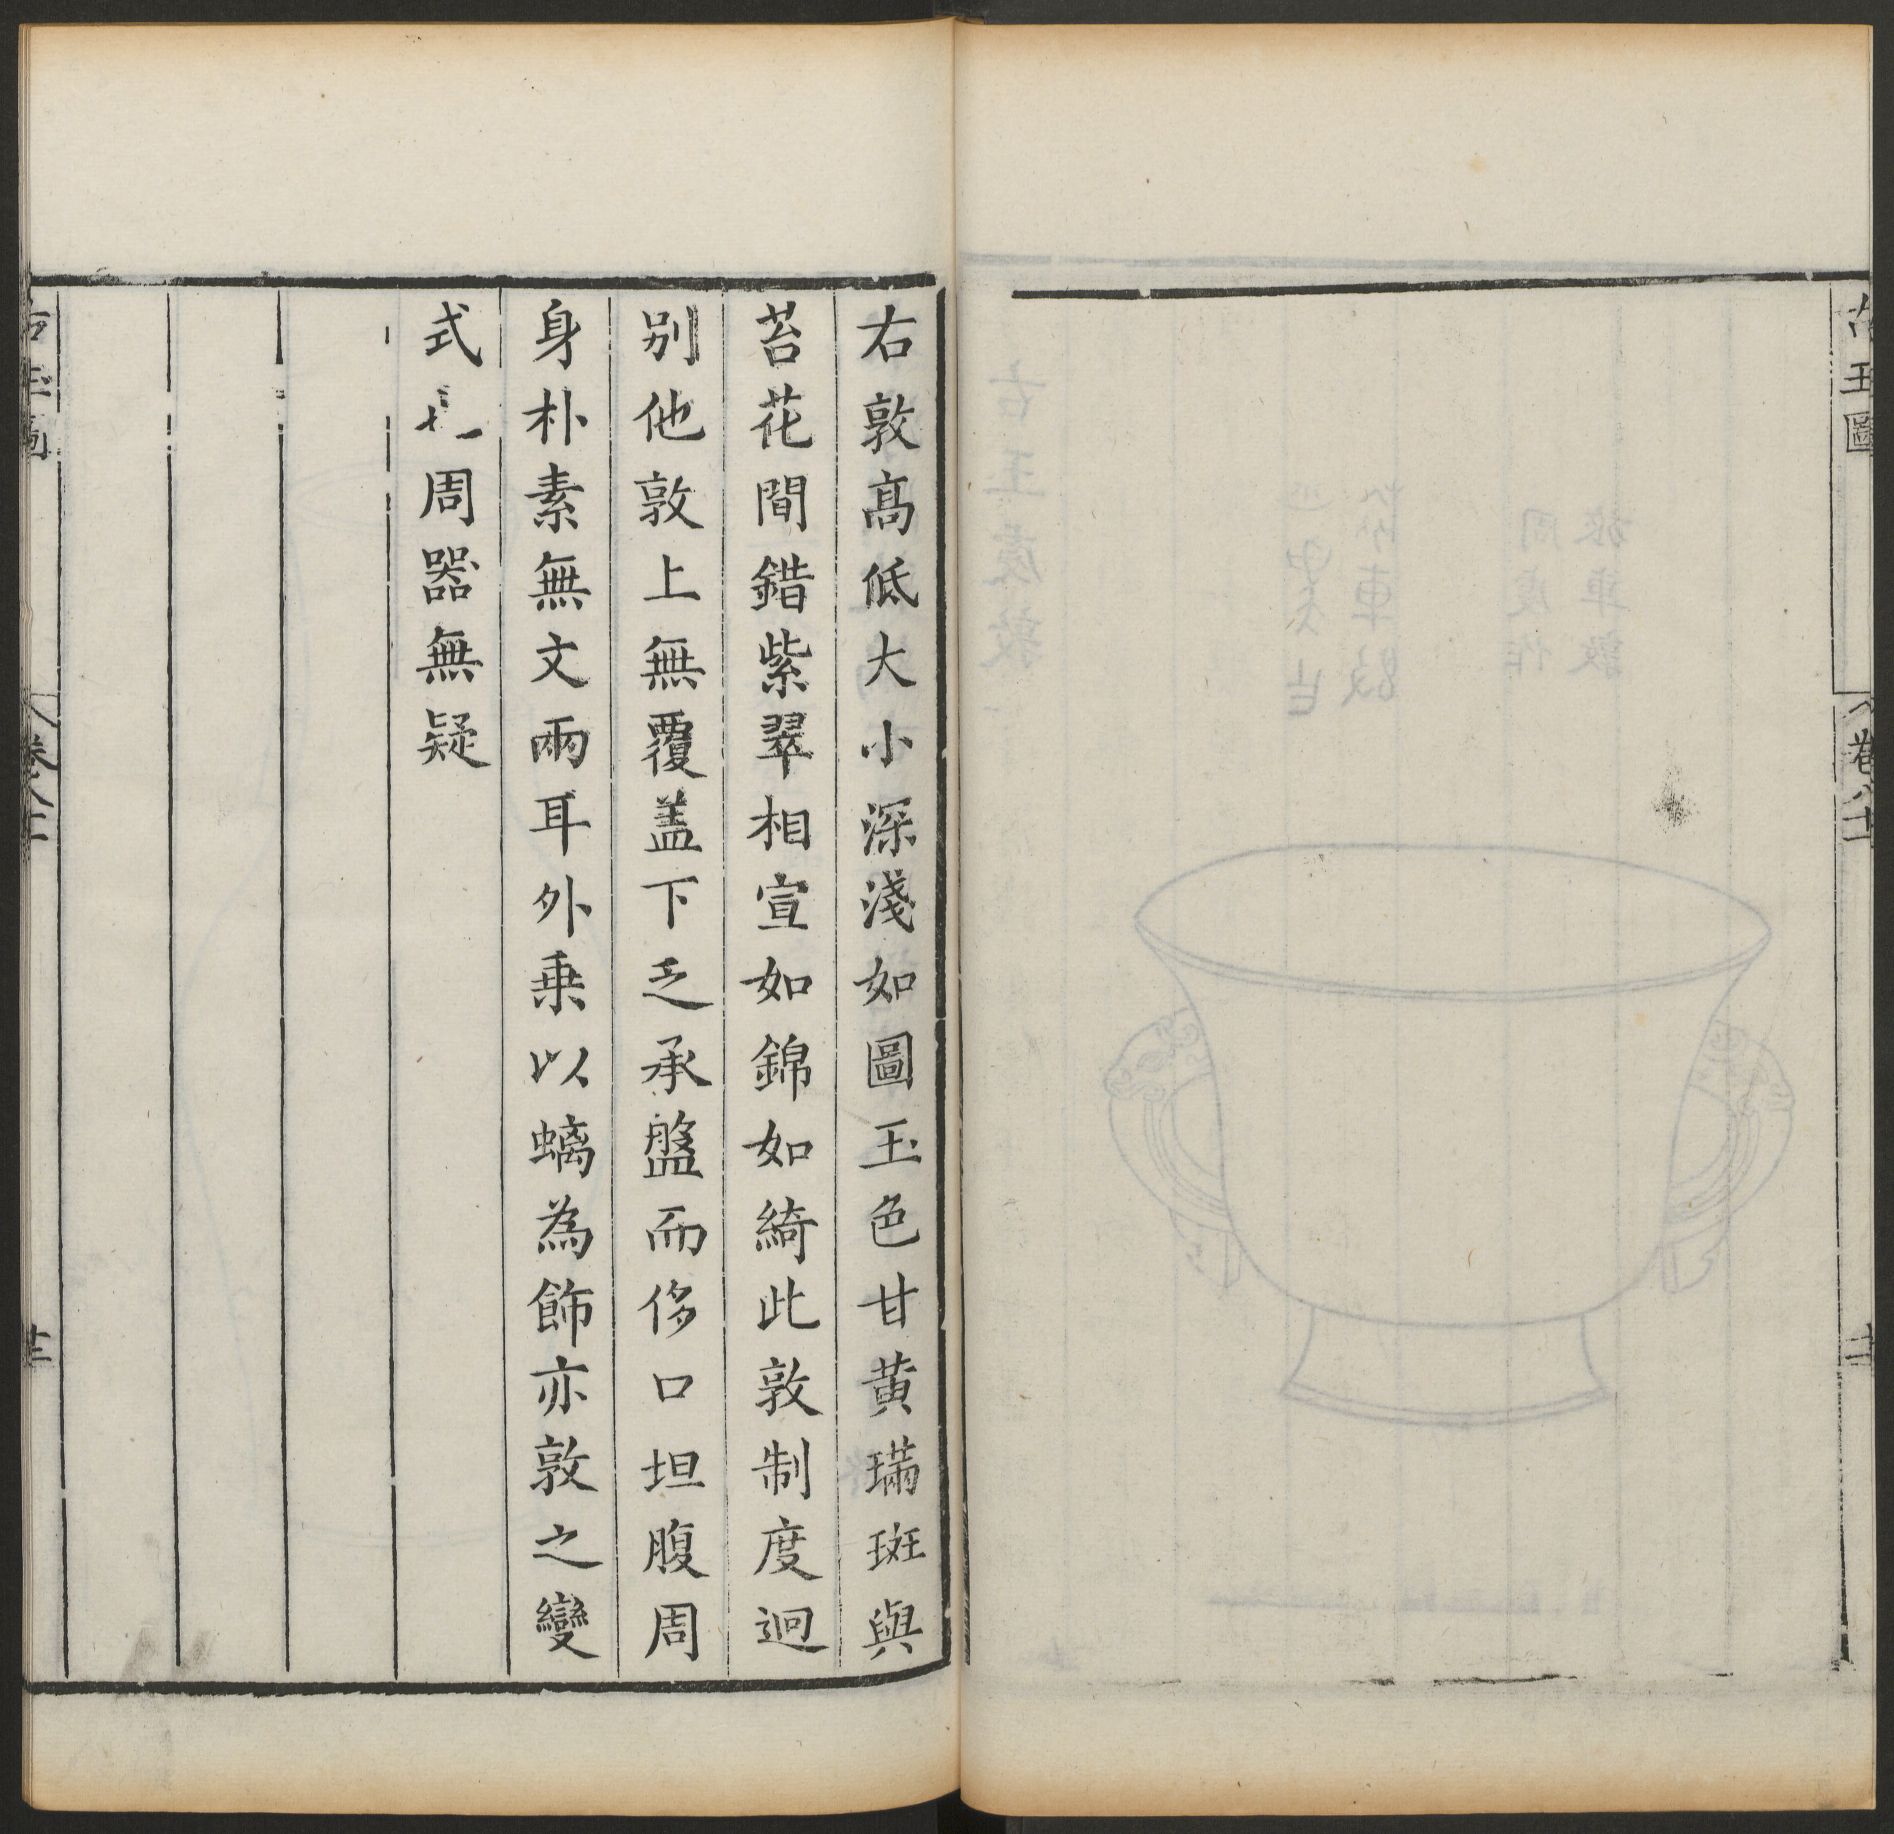 古玉圖
卷八十
右敦高低大小深淺如圖玉色甘黄璊斑與
苔花間錯紫翠相宣如錦如綺此敦制度迥
别他敦上無覆盖下乏承盤而侈口坦腹周
身朴素無文兩耳外乗以螭為飾亦敦之變
式也周器無疑
古玉圖
卷八十